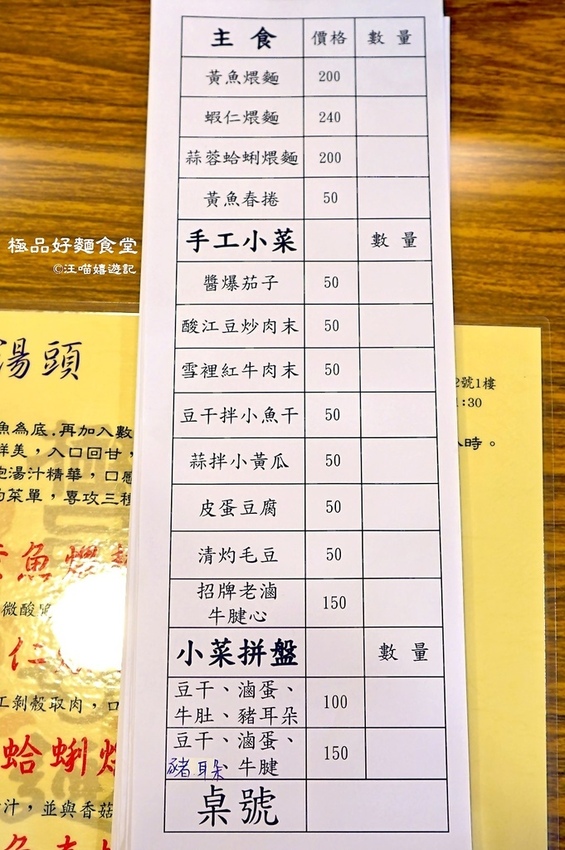 主食 價格 數量
黃魚煨麵 200
蝦仁煨麵 240
蒜蓉蛤蜊煨麵 200
黃魚春捲 50
手工小菜 數量
醬爆茄子 50
酸江豆炒肉末 50
雪裡紅牛肉末 50
豆干拌小魚干 50
蒜拌小黃瓜 50
皮蛋豆腐 50
清灼毛豆 50
招牌老滷
牛腱心 150
小菜拼盤 數量
豆干、滷蛋、
牛肚、豬耳朵 100
豆干、滷蛋、
豬耳朵、牛腱 150
桌號
極品好麵食堂
©汪喵嬉遊記
湯頭
魚為底.再加入數
鮮美，入口回甘，
飽湯汁精華，口感
的菜單，喜攻三種
黃魚煨
微酸
仁
工剝殼取肉，口
蛤蜊煨
汁，並與香菇
2號1樓
1:30
小時。